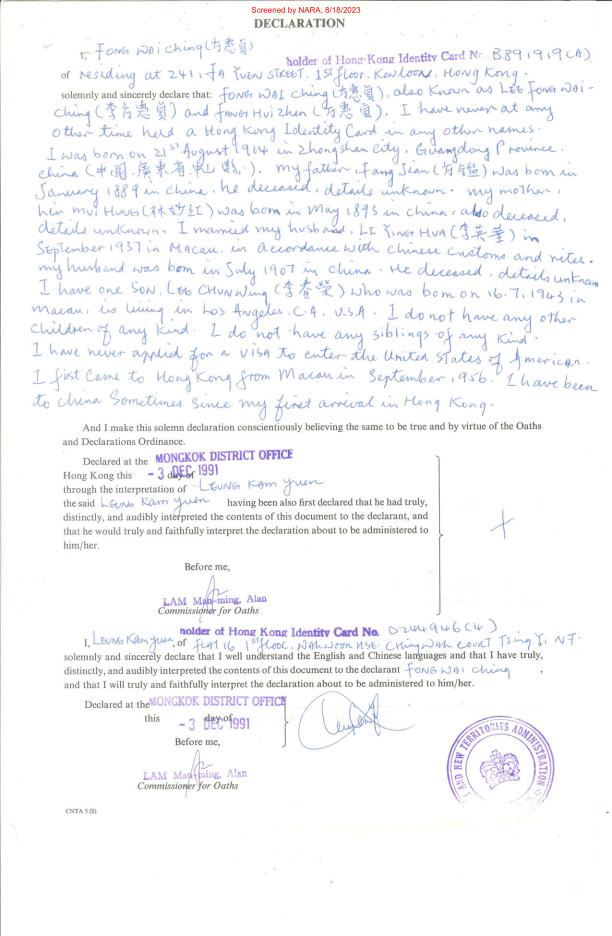 Screened by NARA, 8/18/2023
DECLARATION
I, FONG WAI Ching (方惠貞)
holder of Hong-Kong Identity Card Nr B891919(A)
of residing at 241, FA YUEN STREET, 1st floor, Kowloon, Hong Kong.
solemnly and sincerely declare that: FONG WAI Ching (方惠貞), also Known as LEE FONG WAI-
Ching (李方惠貞) and FONG Hui Zhen (方惠貞). I have never at any
other time held a Hong Kong Identity Card in any other names.
I was born on 21st August 1914 in Zhongshan City, Guangdong Province.
China (中國.廣東省.中山縣.). my father, Fang Jian (方鑑) was born in
January 1889 in China. he deceased, details unknown. my mother,
MUI HUNG (林妙紅) was born in May 1893 in China, also deceased,
details unknown. I married my husband, LI YING HUA (李英華) in
September 1937 in Macau. in accordance with Chinese Customs and rites.
my husband was born in July 1907 in China. He deceased, details unknown
I have one SON, LEE CHUN Wing (李春榮) who was born on 16.7.1943 in
Macau, is living in Los Angeles, C.A. U.S.A. I do not have any other
Children of any Kind. I do not have any siblings of any Kind.
I have never applied for a VISA to enter the United States of American.
I first Came to Hong Kong from Macau in September, 1956. I have been
to China Sometimes Since my first arrival in Hong Kong.
And I make this solemn declaration conscientiously believing the same to be true and by virtue of the Oaths
and Declarations Ordinance.
Declared at the MONGKOK DISTRICT OFFICE
Hong Kong this - 3 DEC 1991 day of
through the interpretation of LEUNG KAM Yuen
the said LEUNG KAM Yuen having been also first declared that he had truly,
distinctly, and audibly interpreted the contents of this document to the declarant, and
that he would truly and faithfully interpret the declaration about to be administered to
him/her.
Before me,
LAM Man-ming, Alan
Commissioner for Oaths
holder of Hong Kong Identity Card No. D244946(4)
I, LEUNG KAM Yuen, of FLAT 16 1st floor, WAH WOON HSE. CHING WAH COURT Tsing Yi, N.T.
solemnly and sincerely declare that I well understand the English and Chinese languages and that I have truly,
distinctly, and audibly interpreted the contents of this document to the declarant FONG WAI Ching,
and that I will truly and faithfully interpret the declaration about to be administered to him/her.
Declared at the MONGKOK DISTRICT OFFICE
this - 3 DEC 1991 day of
Before me,
LAM Man-ming, Alan
Commissioner for Oaths
AND NEW TERRITORIES ADMINISTRATION
CNTA 5 (S)